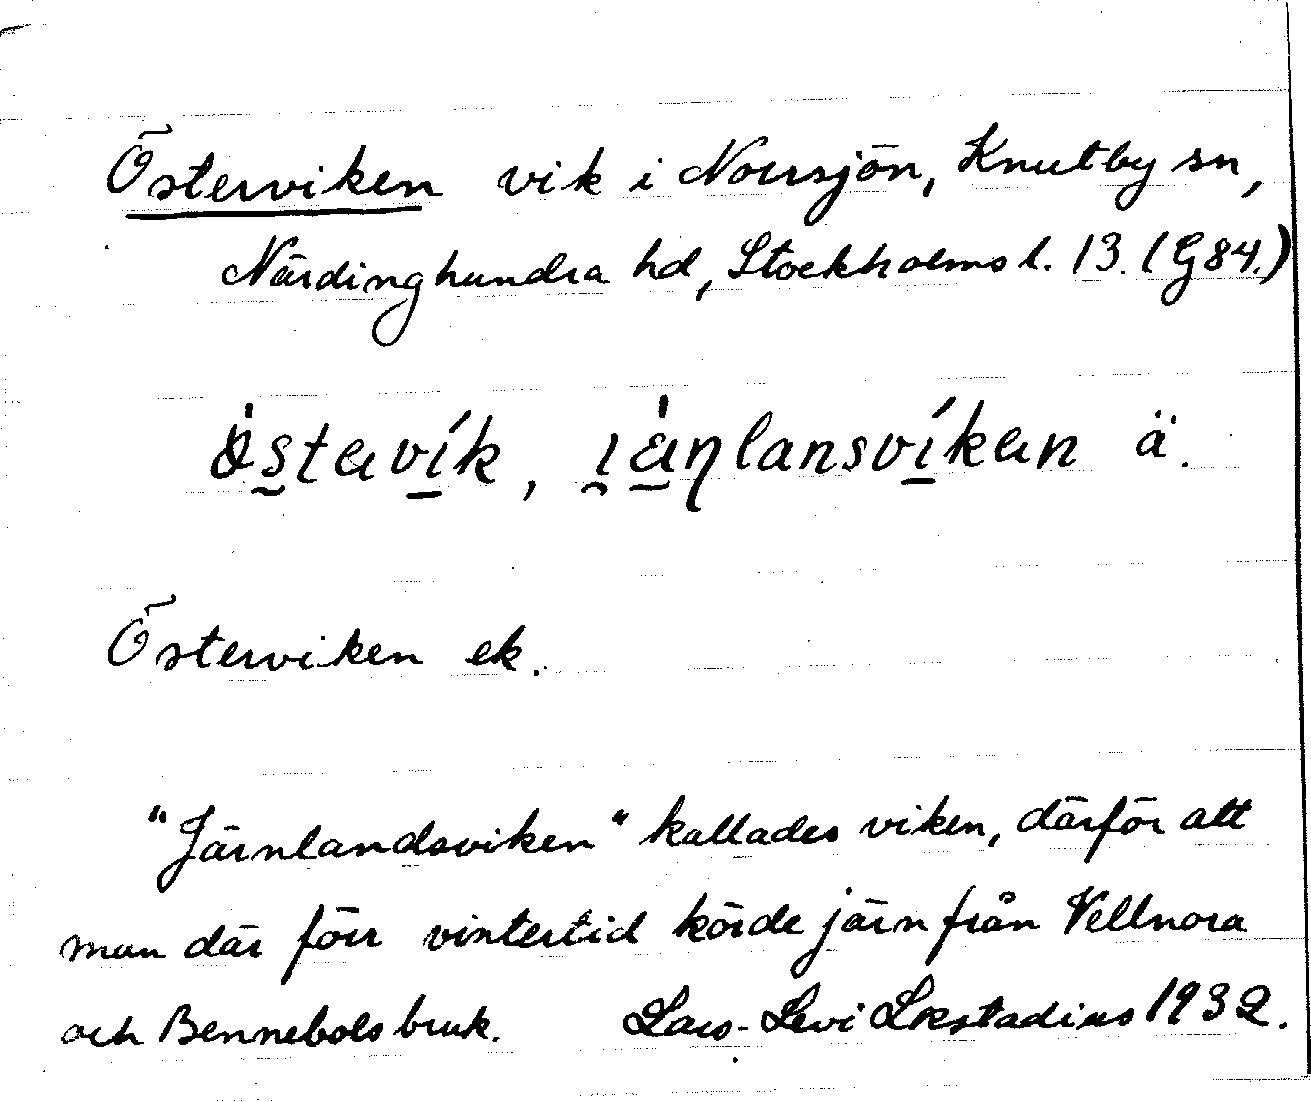 Österviken vik i Norrsjön, Knutby sn,
Närdinghundra hd, Stockholms l. 13. (G 84.)
östavík, ı̯ä́ṇlansvíkan ä.
Österviken ek.
"Järnlandsviken" kallades viken, därför att
man där förr vintertid körde järn från Vellnora
och Bennebols bruk. Lars-Levi Læstadius 1932.